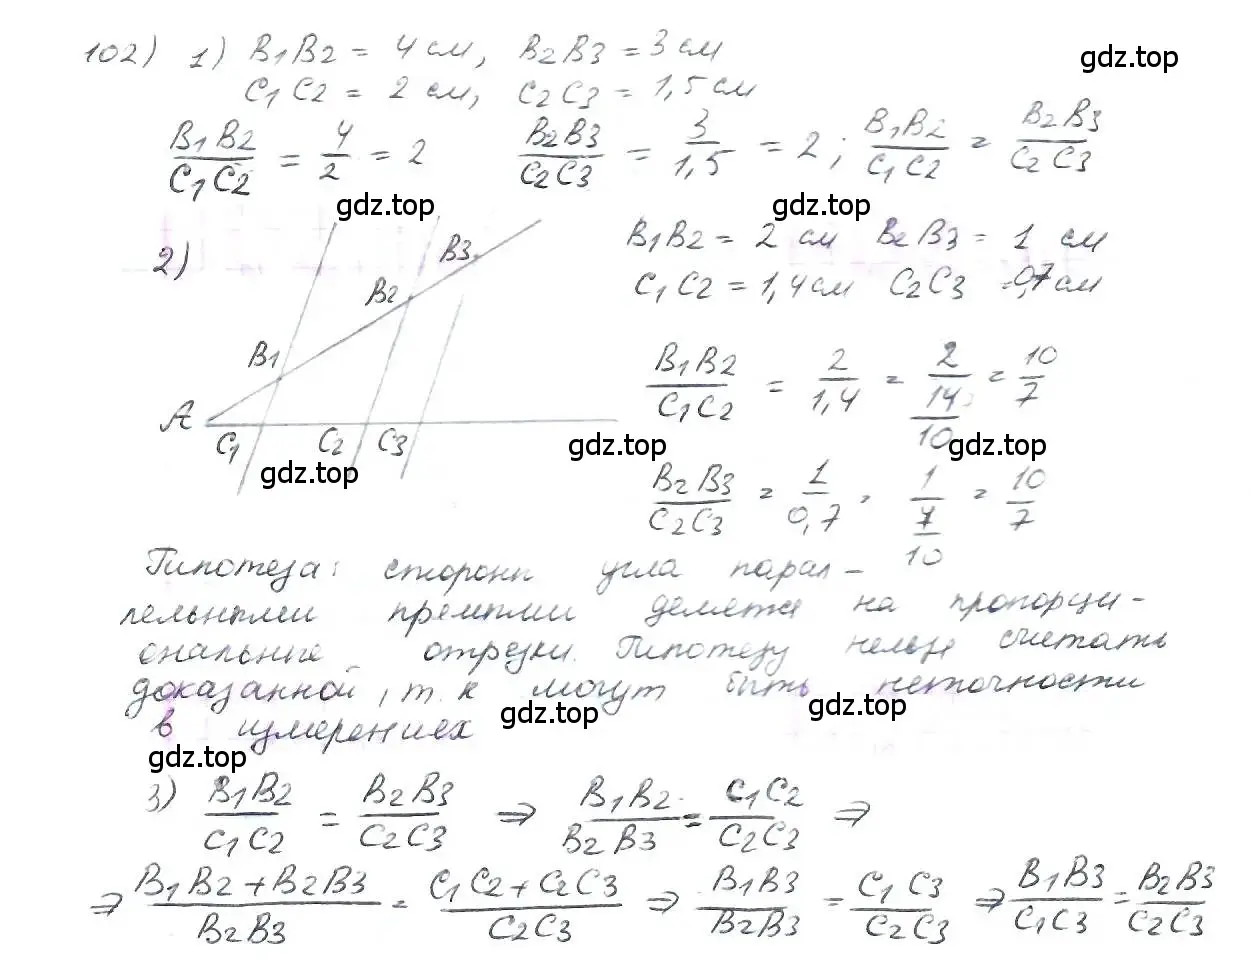 102) 1) B1B2 = 4 см, B2B3 = 3 см
gdz.top
C1C2 = 2 см, C2C3 = 1,5 см
B1B2/C1C2 = 4/2 = 2 B2B3/C2C3 = 3/1,5 = 2; B1B2/C1C2 = B2B3/C2C3
gdz.top gdz.top
2) B1B2 = 2 см B2B3 = 1 см
C1C2 = 1,4 см C2C3 = 0,7 см
B3
B2
B1
A
C1 C2 C3
B1B2/C1C2 = 2/1,4 = 2/(14/10) = 10/7
gdz.top gdz.top gdz.top
B2B3/C2C3 = 1/0,7 = 1/(7/10) = 10/7
Гипотеза: стороны угла парал-
лельными прямыми делятся на пропорци-
ональные отрезки. Гипотезу нельзя считать
доказанной, т.к могут быть неточности
в измерениях
gdz.top gdz.top
gdz.top
3) B1B2/C1C2 = B2B3/C2C3 ⇒ B1B2/B2B3 = C1C2/C2C3 ⇒
⇒ B1B2+B2B3/B2B3 = C1C2+C2C3/C2C3 ⇒ B1B3/B2B3 = C1C3/C2C3 ⇒ B1B3/C1C3 = B2B3/C2C3